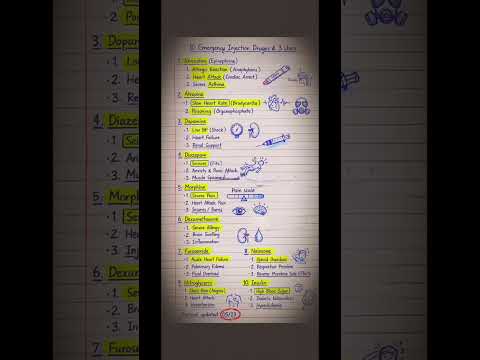 10 Emergency Injection Druges & 3 Uses
1. Adrenaline (Epinephrine)
1. Allergic Reaction (Anaphylaxis)
2. Heart Attack (Cardiac Arrest)
3. Severe Asthma
2. Atropine
1. Slow Heart Rate (Bradycardia)
2. Poisoning (Organophosphate)
3. Dopamine
1. Low BP (Shock)
2. Heart Failure
3. Renal Support
4. Diazepam
1. Seizures (Fits)
2. Anxiety & Panic Attack
3. Muscle
5. Morphine
1. Severe Pain
2. Heart Attack Pain
3. Injuries / Burns
Pain scale
6. Dexamethasone
1. Severe Allergy
2. Brain Swelling
3. Inflammation
7. Furosemide
1. Acute Heart Failure
2. Pulmonary Edema
3. Fluid Overload
8. Naloxone
1. Opioid Overdose
2. Respiration Problem
3. Reverse Morphine Side Effects
9. Nitroglycerin
1. Chest Pain (Angina)
2. Heart Attack
3. Hypertension
10. Insulin
1. High Blood Sugar
2. Diabetic Ketoacidosis
3. Hyperkalemia
updated: 05/23
3. Dopam
1 Lo
2 He
3. Re
4. Diaze
1 Sei
2. An
3. Mu
5. Morph
1 Se
2 He
3 In
6. Dexum
1 Se
2 Br
3 In
7 Furose